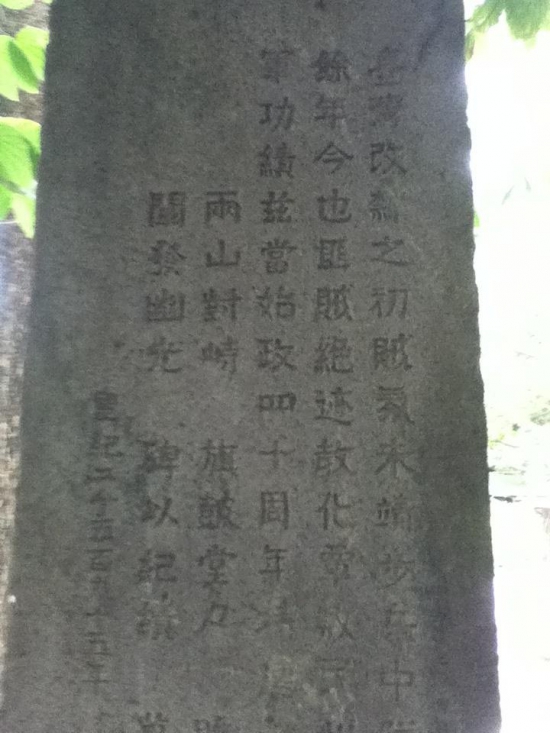 臺灣改隸之初賊氛未靖步兵中隊
餘年今也匪賊絕迹教化覃敷民
軍功績茲當始政四十周年
兩山對峙 旗鼓堂々
闡發幽光 碑以紀績
皇紀二千五百九十五年